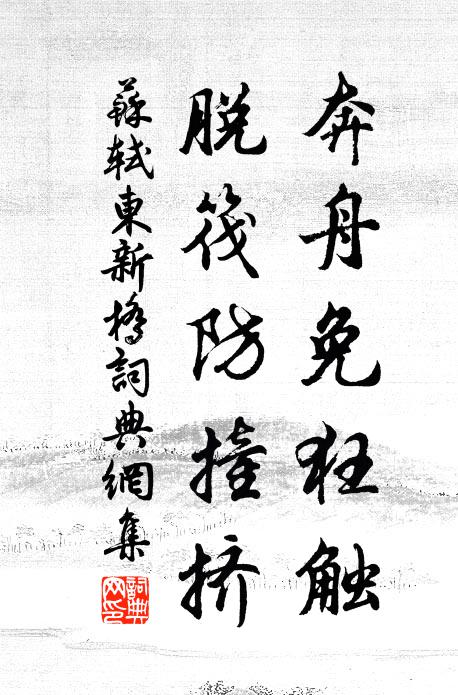 奔舟免狂触
脱筏防撞挤
蘇軾東新橋詞典網集
詞典网印